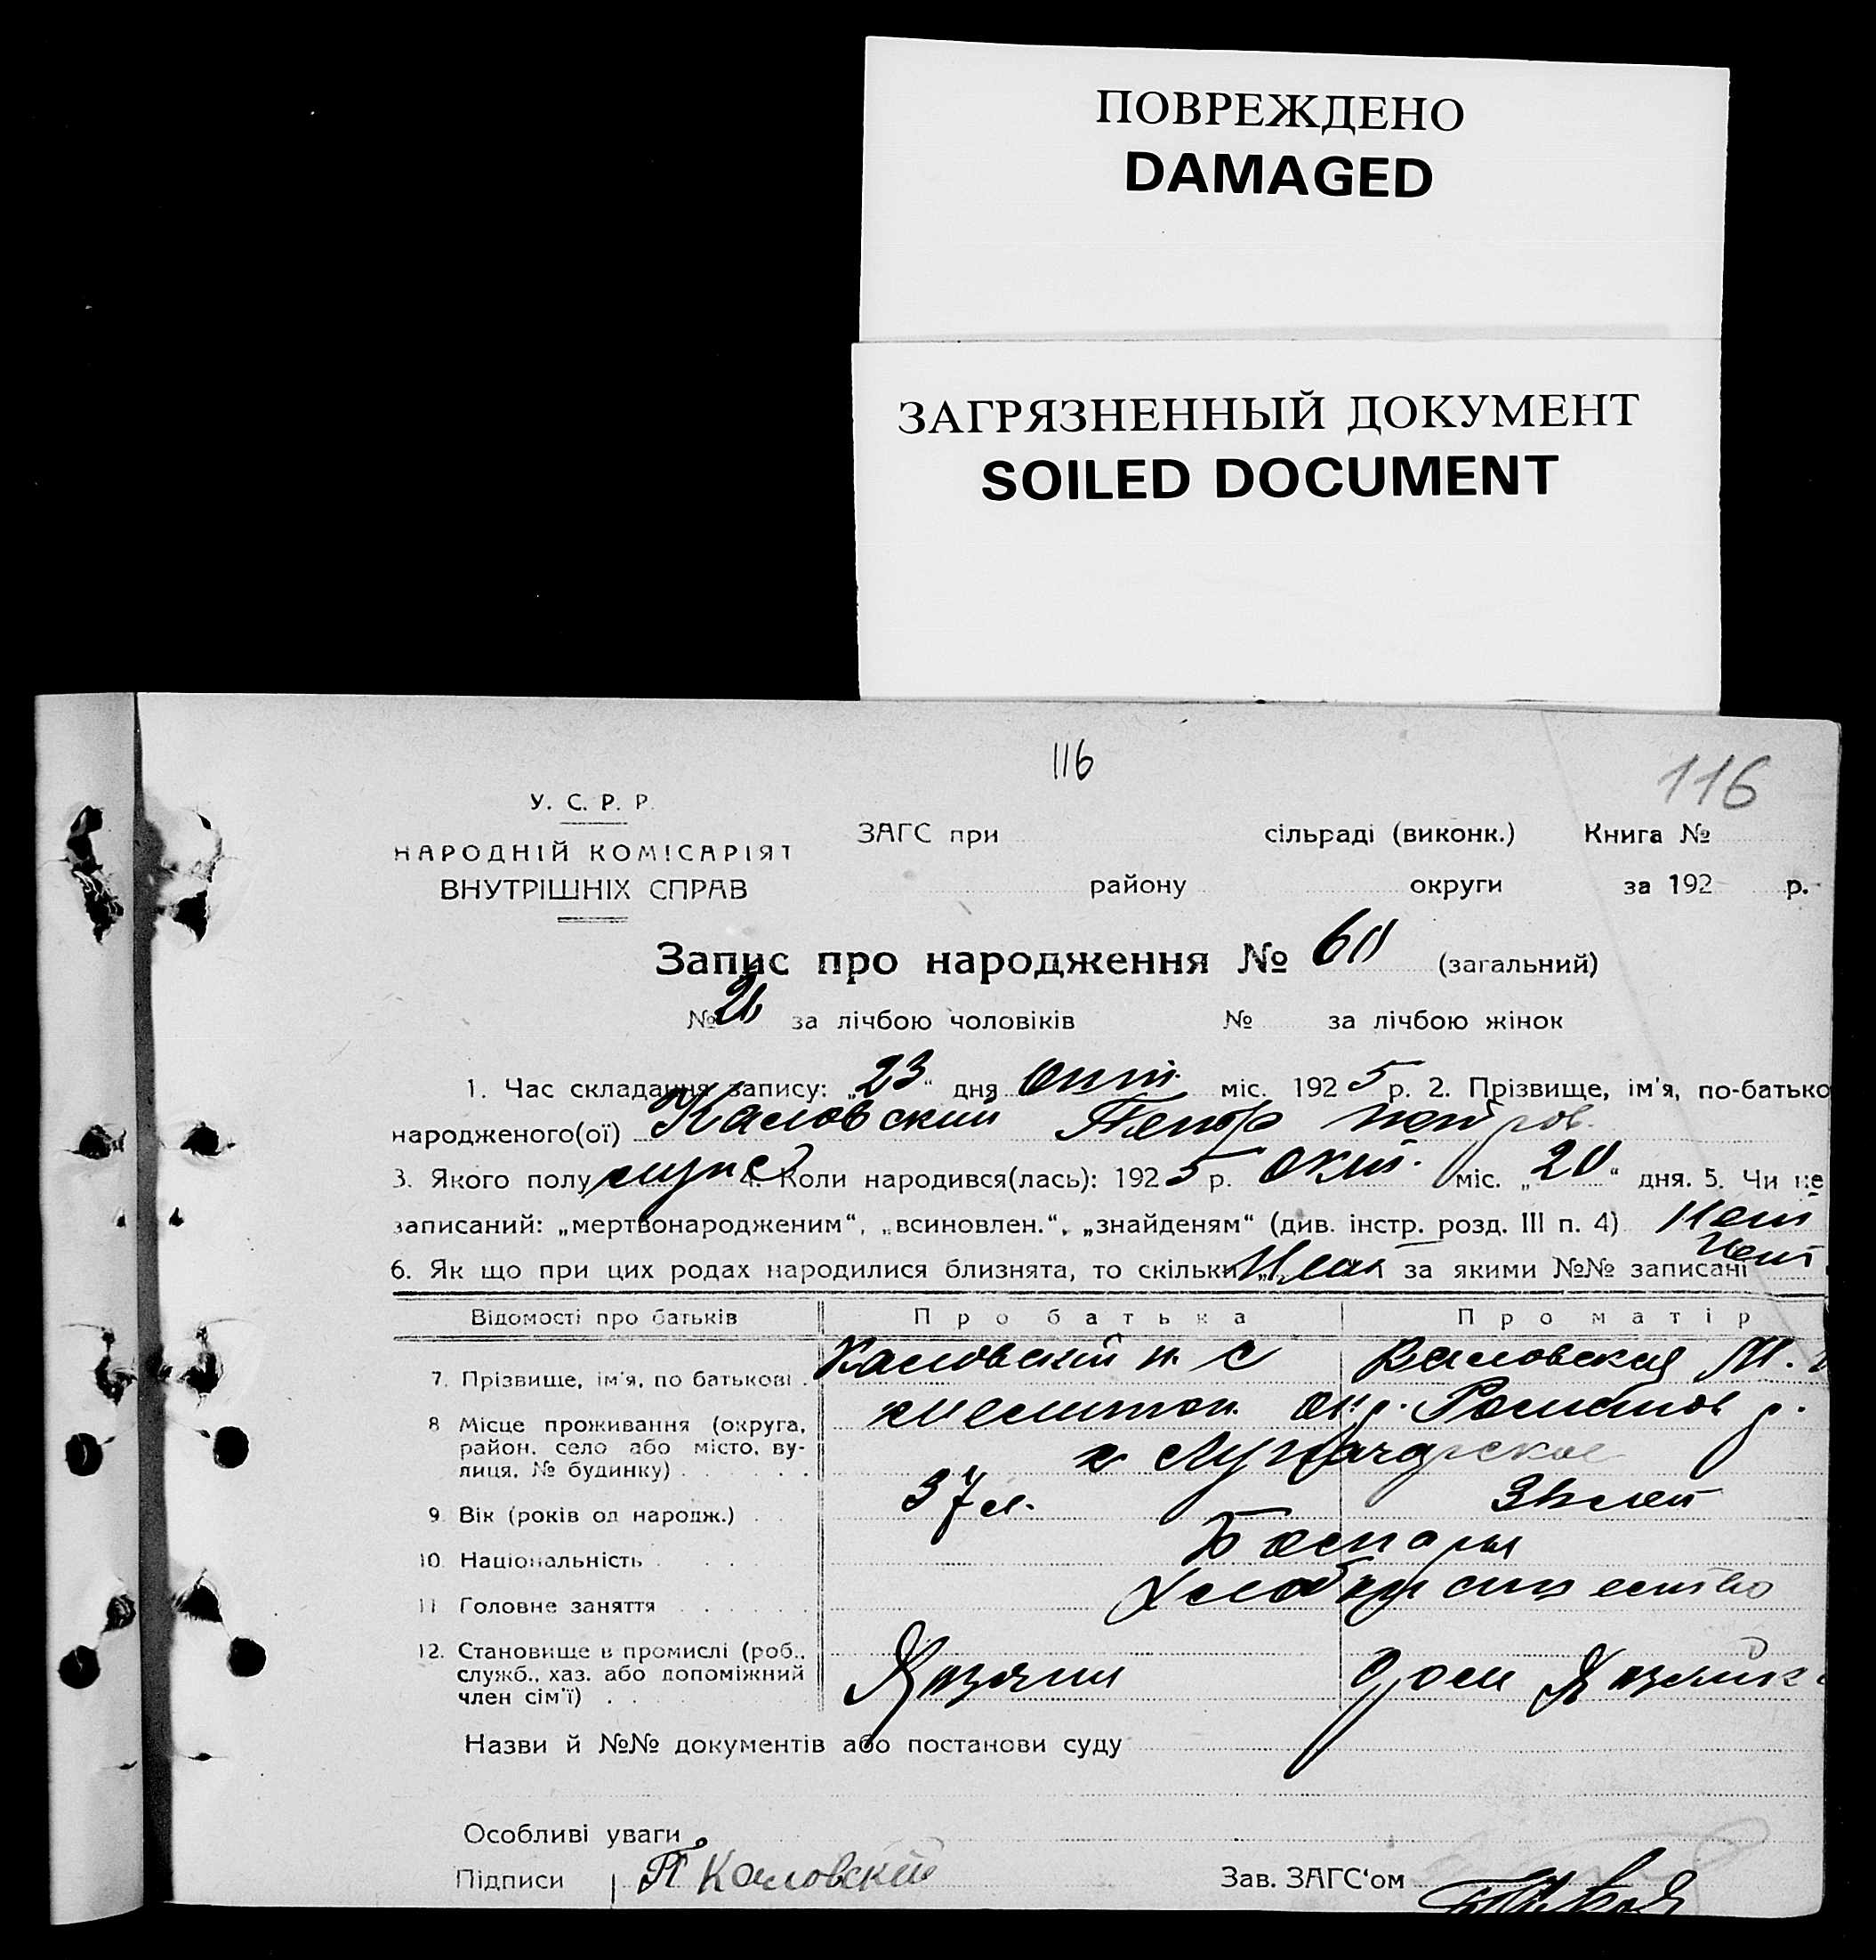 ПОВРЕЖДЕНО
DAMAGED
ЗАГРЯЗНЕННЫЙ ДОКУМЕНТ
SOILED DOCUMENT
116
116
У. С. Р. Р.
НАРОДНІЙ КОМІСАРІЯТ
ВНУТРІШНІХ СПРАВ
ЗАГС при сільраді (виконк.) Книга №
району округи за 192 р.
Запис про народження № 60 (загальний)
№ за лічбою чоловіків № за лічбою жінок
1. Час складання запису: „23“ дня Окт. міс. 1925 р. 2. Прізвище, ім'я, по-батько
народженого(ої) Каловский Петр Петров.
3. Якого полу муж 4. Коли народився(лась): 1925 р. Окт. міс. „20“ дня. 5. Чи не
записаний: „мертвонародженим“, „всиновлен.“, „знайденям“ (див. інстр. розд. III п. 4) Нет
6. Як що при цих родах народилися близнята, то скільки за якими №№ записані Нет
Відомості про батьків Про батька Про матір
7. Прізвище, ім'я, по батькові . Каловский П. С Каловская М.
8 Місце проживання (округа, район, село або місто, вулиця, № будинку) . . . . . . Мелитоп. окр. р.
9 Вік (років од народж.) . . 37 л. лет
10. Національність . . . Болгары
11 Головне заняття . . . . . . Хлебопашество
12. Становище в промислі (роб., служб., хаз. або допоміжний член сім'ї) . . . . Хазяин Дом Хазяйк
Назви й №№ документів або постанови суду
Особливі уваги
Підписи П Каловскій Зав. ЗАГС'ом